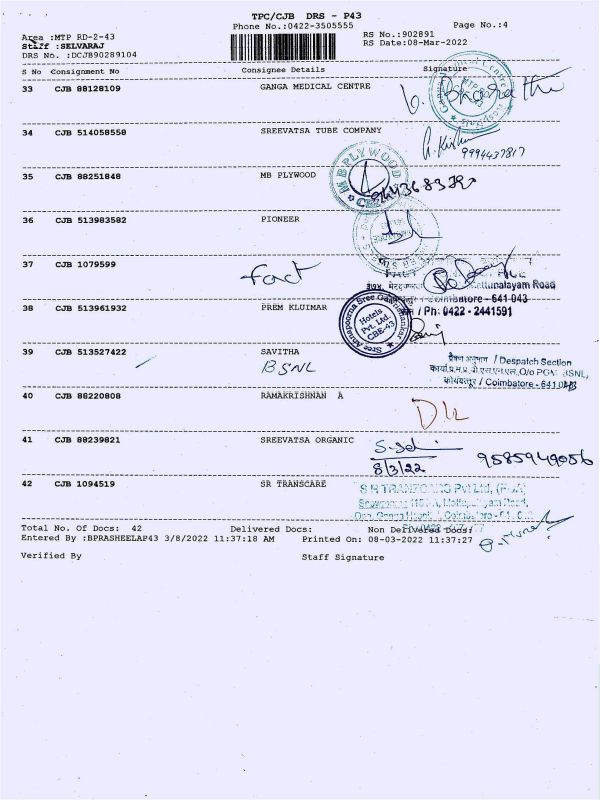 TPC/CJB DRS - P43
Phone No.:0422-3505555
Page No.:4
Area :MTP RD-2-43
RS No.:902891
Staff :SELVARAJ
RS Date:08-Mar-2022
DRS No. :DCJB90289104
S No Consignment No Consignee Details Signature
33 CJB 88128109 GANGA MEDICAL CENTRE
34 CJB 514058558 SREEVATSA TUBE COMPANY
9994437817
35 CJB 88251848 MB PLYWOOD
MBPLYWOOD
36 CJB 513983582 PIONEER
37 CJB 1079599
fact
Coimbatore - 641 043
/ Ph: 0422 - 2441591
38 CJB 513961932 PREM KLUIMAR
Hotels
Pvt. Ltd.
CBE-43
39 CJB 513527422 SAVITHA
BSNL
/ Despatch Section
/ Coimbatore - 641 043
40 CJB 88220808 RAMAKRISHNAN A
41 CJB 88239821 SREEVATSA ORGANIC
8/3/22
9585949056
42 CJB 1094519 SR TRANSCARE
Total No. Of Docs: 42 Delivered Docs: Non Delivered Docs:
Entered By :BPRASHEELAP43 3/8/2022 11:37:18 AM Printed On: 08-03-2022 11:37:27
Verified By Staff Signature